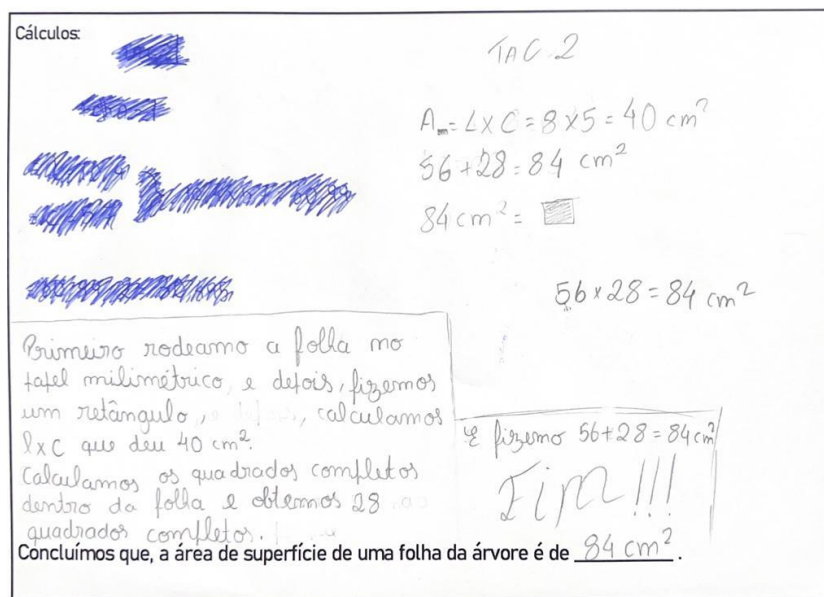 Cálculos:
TAC.2
Am = L x C = 8 x 5 = 40 cm²
56 + 28 = 84 cm²
84 cm² =
56 x 28 = 84 cm²
Primeiro rodeamo a folha no
papel milimétrico, e depois, fizemos
um retângulo, , calculamos
l x C que deu 40 cm².
Calculamos os quadrados completos
dentro da folha e obtemos 28
quadrados completos.
E fizemo 56 + 28 = 84 cm²
Fim!!!
Concluímos que, a área de superfície de uma folha da árvore é de 84 cm².